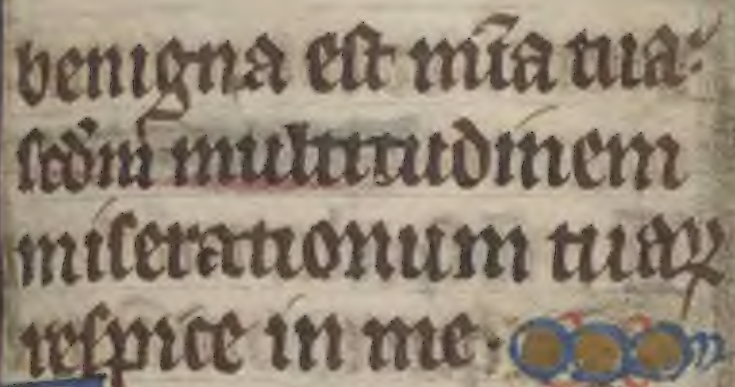 benigna est mīa tua:
scdm̄ multitudinem
miserationum tuaꝝ
respice in me.